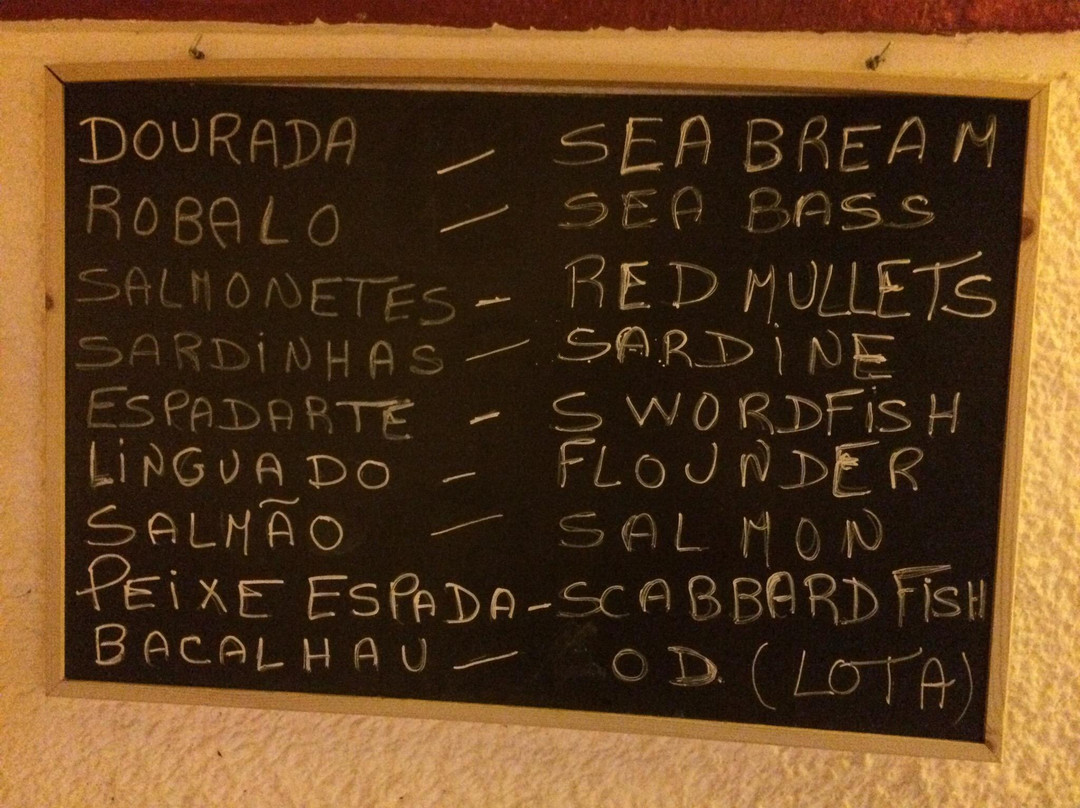 DOURADA - SEA BREAM
ROBALO - SEA BASS
SALMONETES - RED MULLETS
SARDINHAS - SARDINE
ESPADARTE - SWORDFISH
LINGUADO - FLOUNDER
SALMÃO - SALMON
PEIXE ESPADA - SCABBARD FISH
BACALHAU - OD. (LOTA)